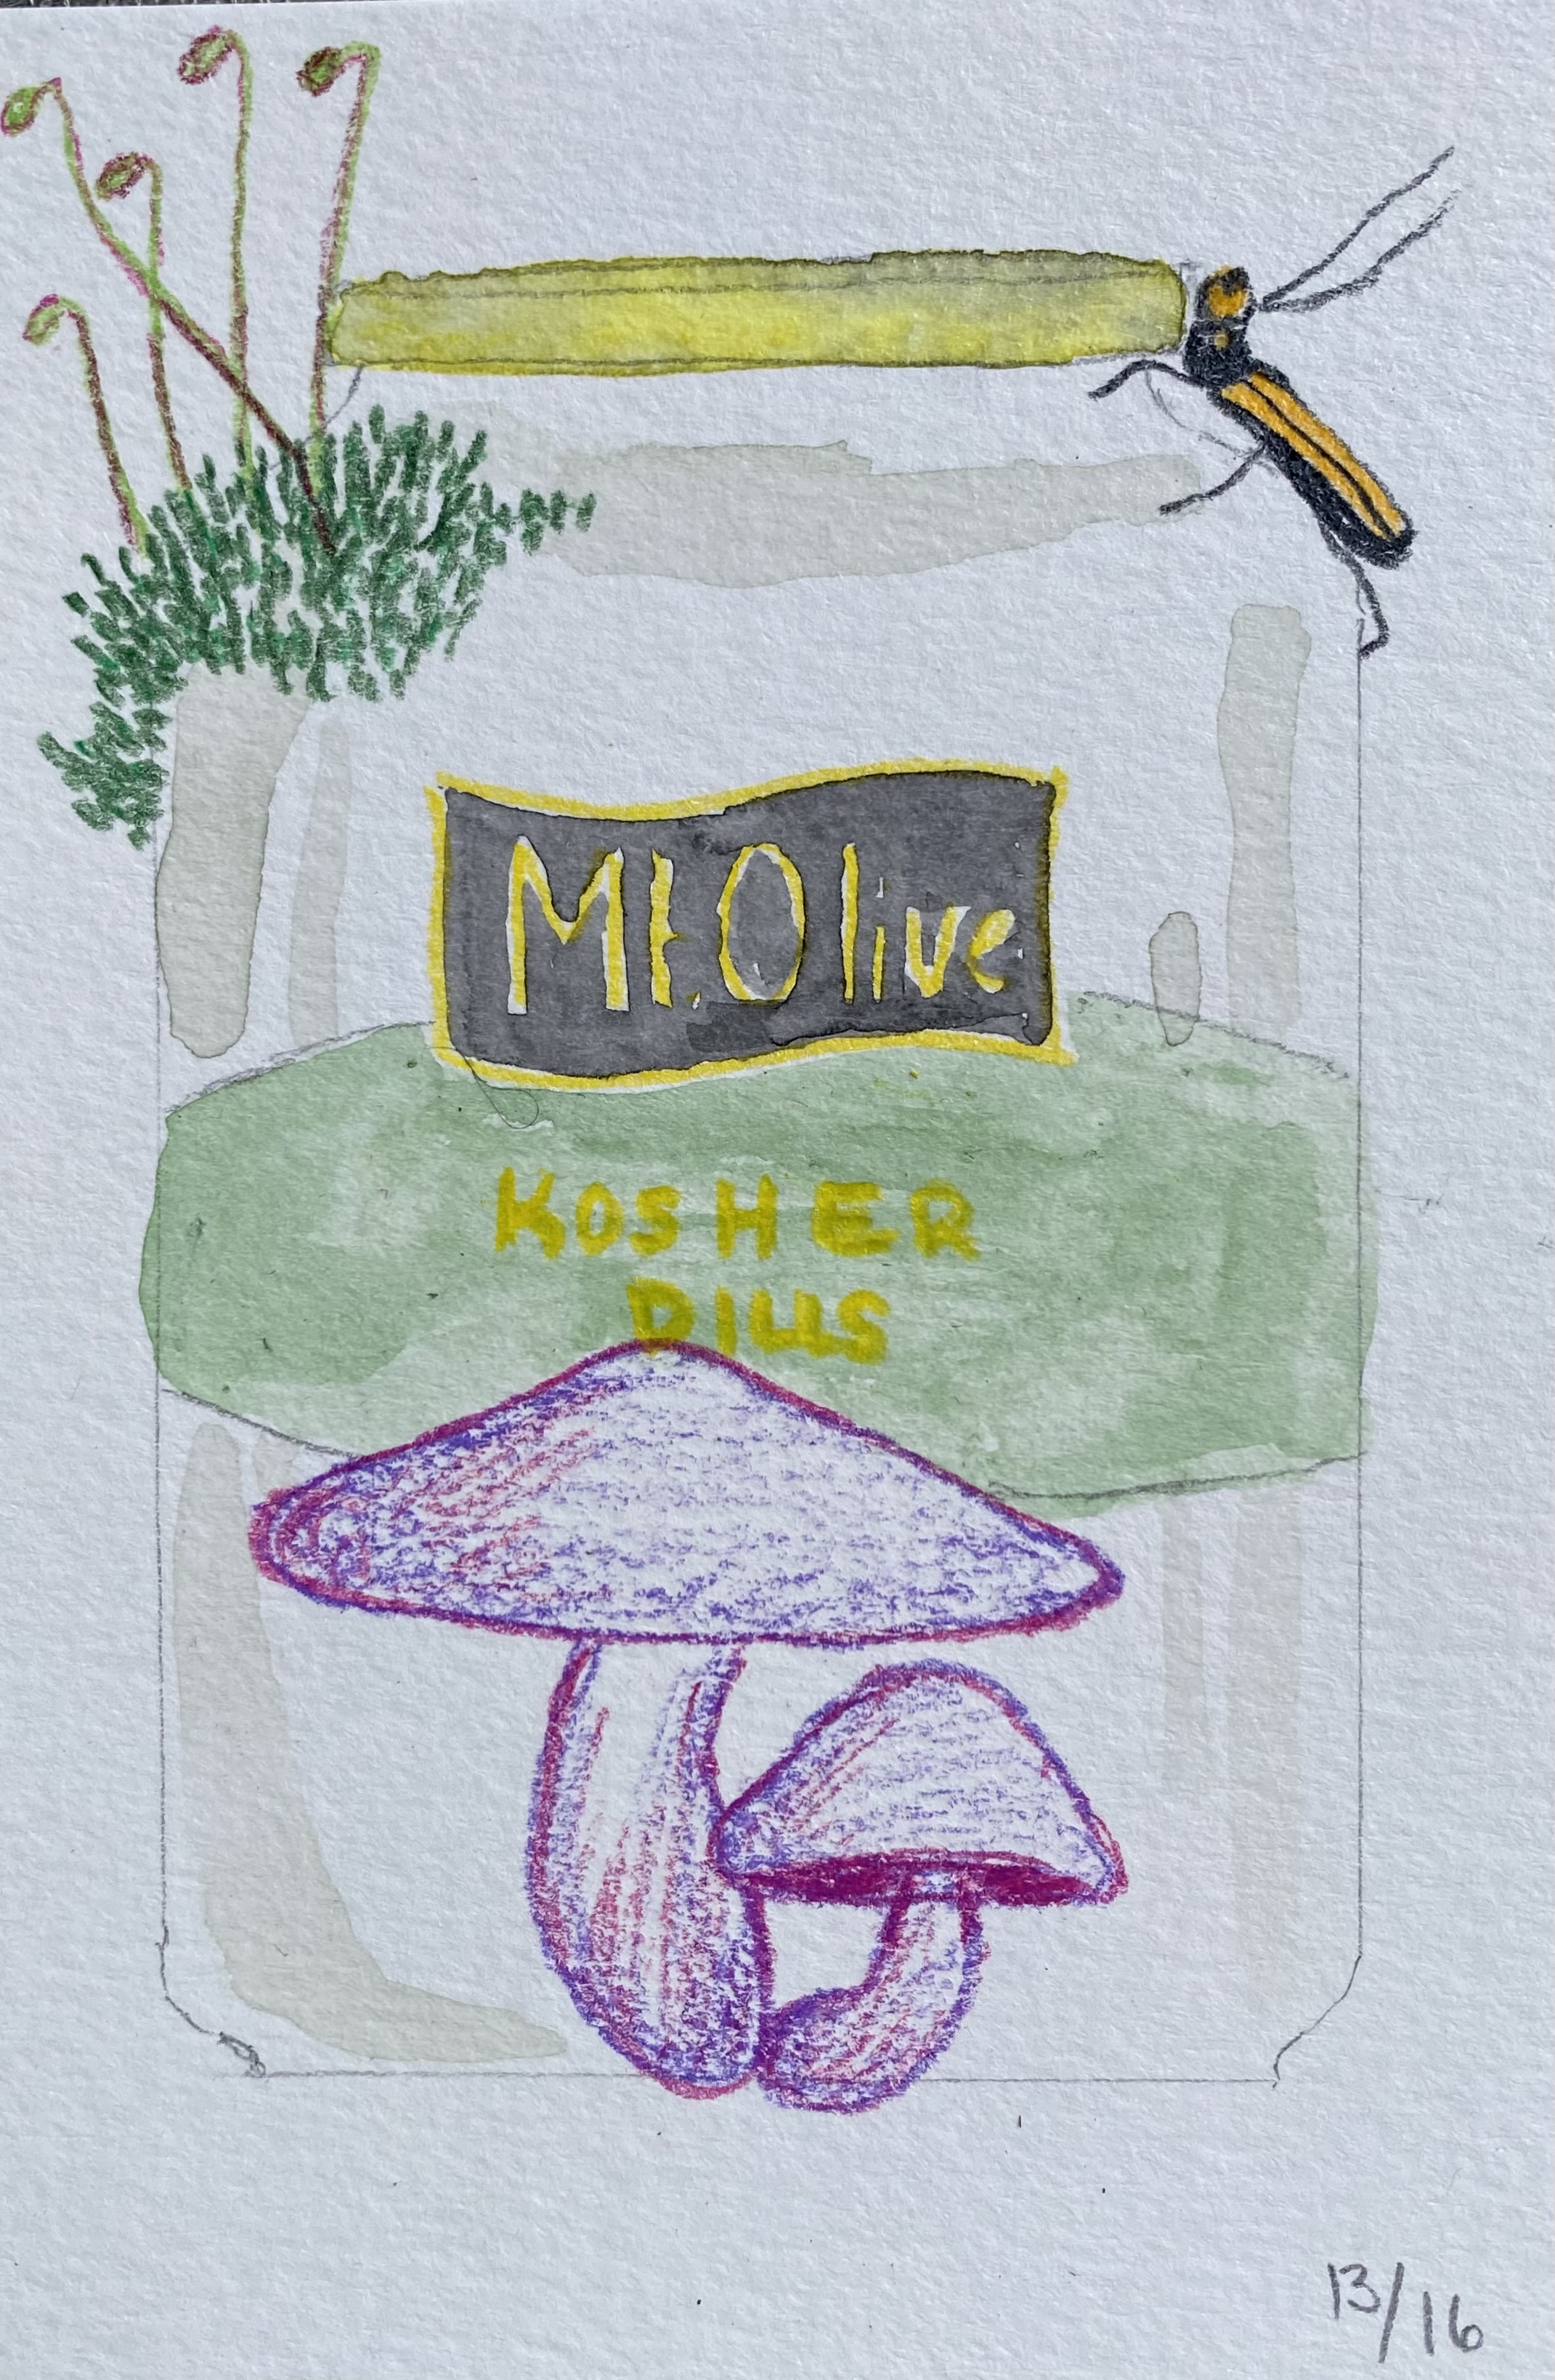 Mt. Olive
KOSHER
DILLS
13/16